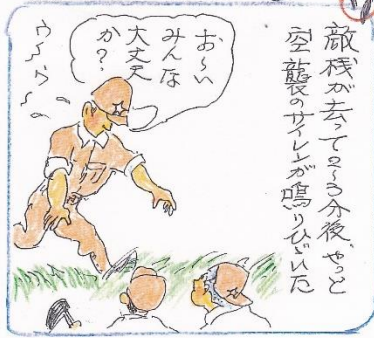 敵機が去って2~3分後、やっと
空襲のサイレンが鳴りひびいた
お~い
みんな
大丈夫
か?
ウ~ウ~